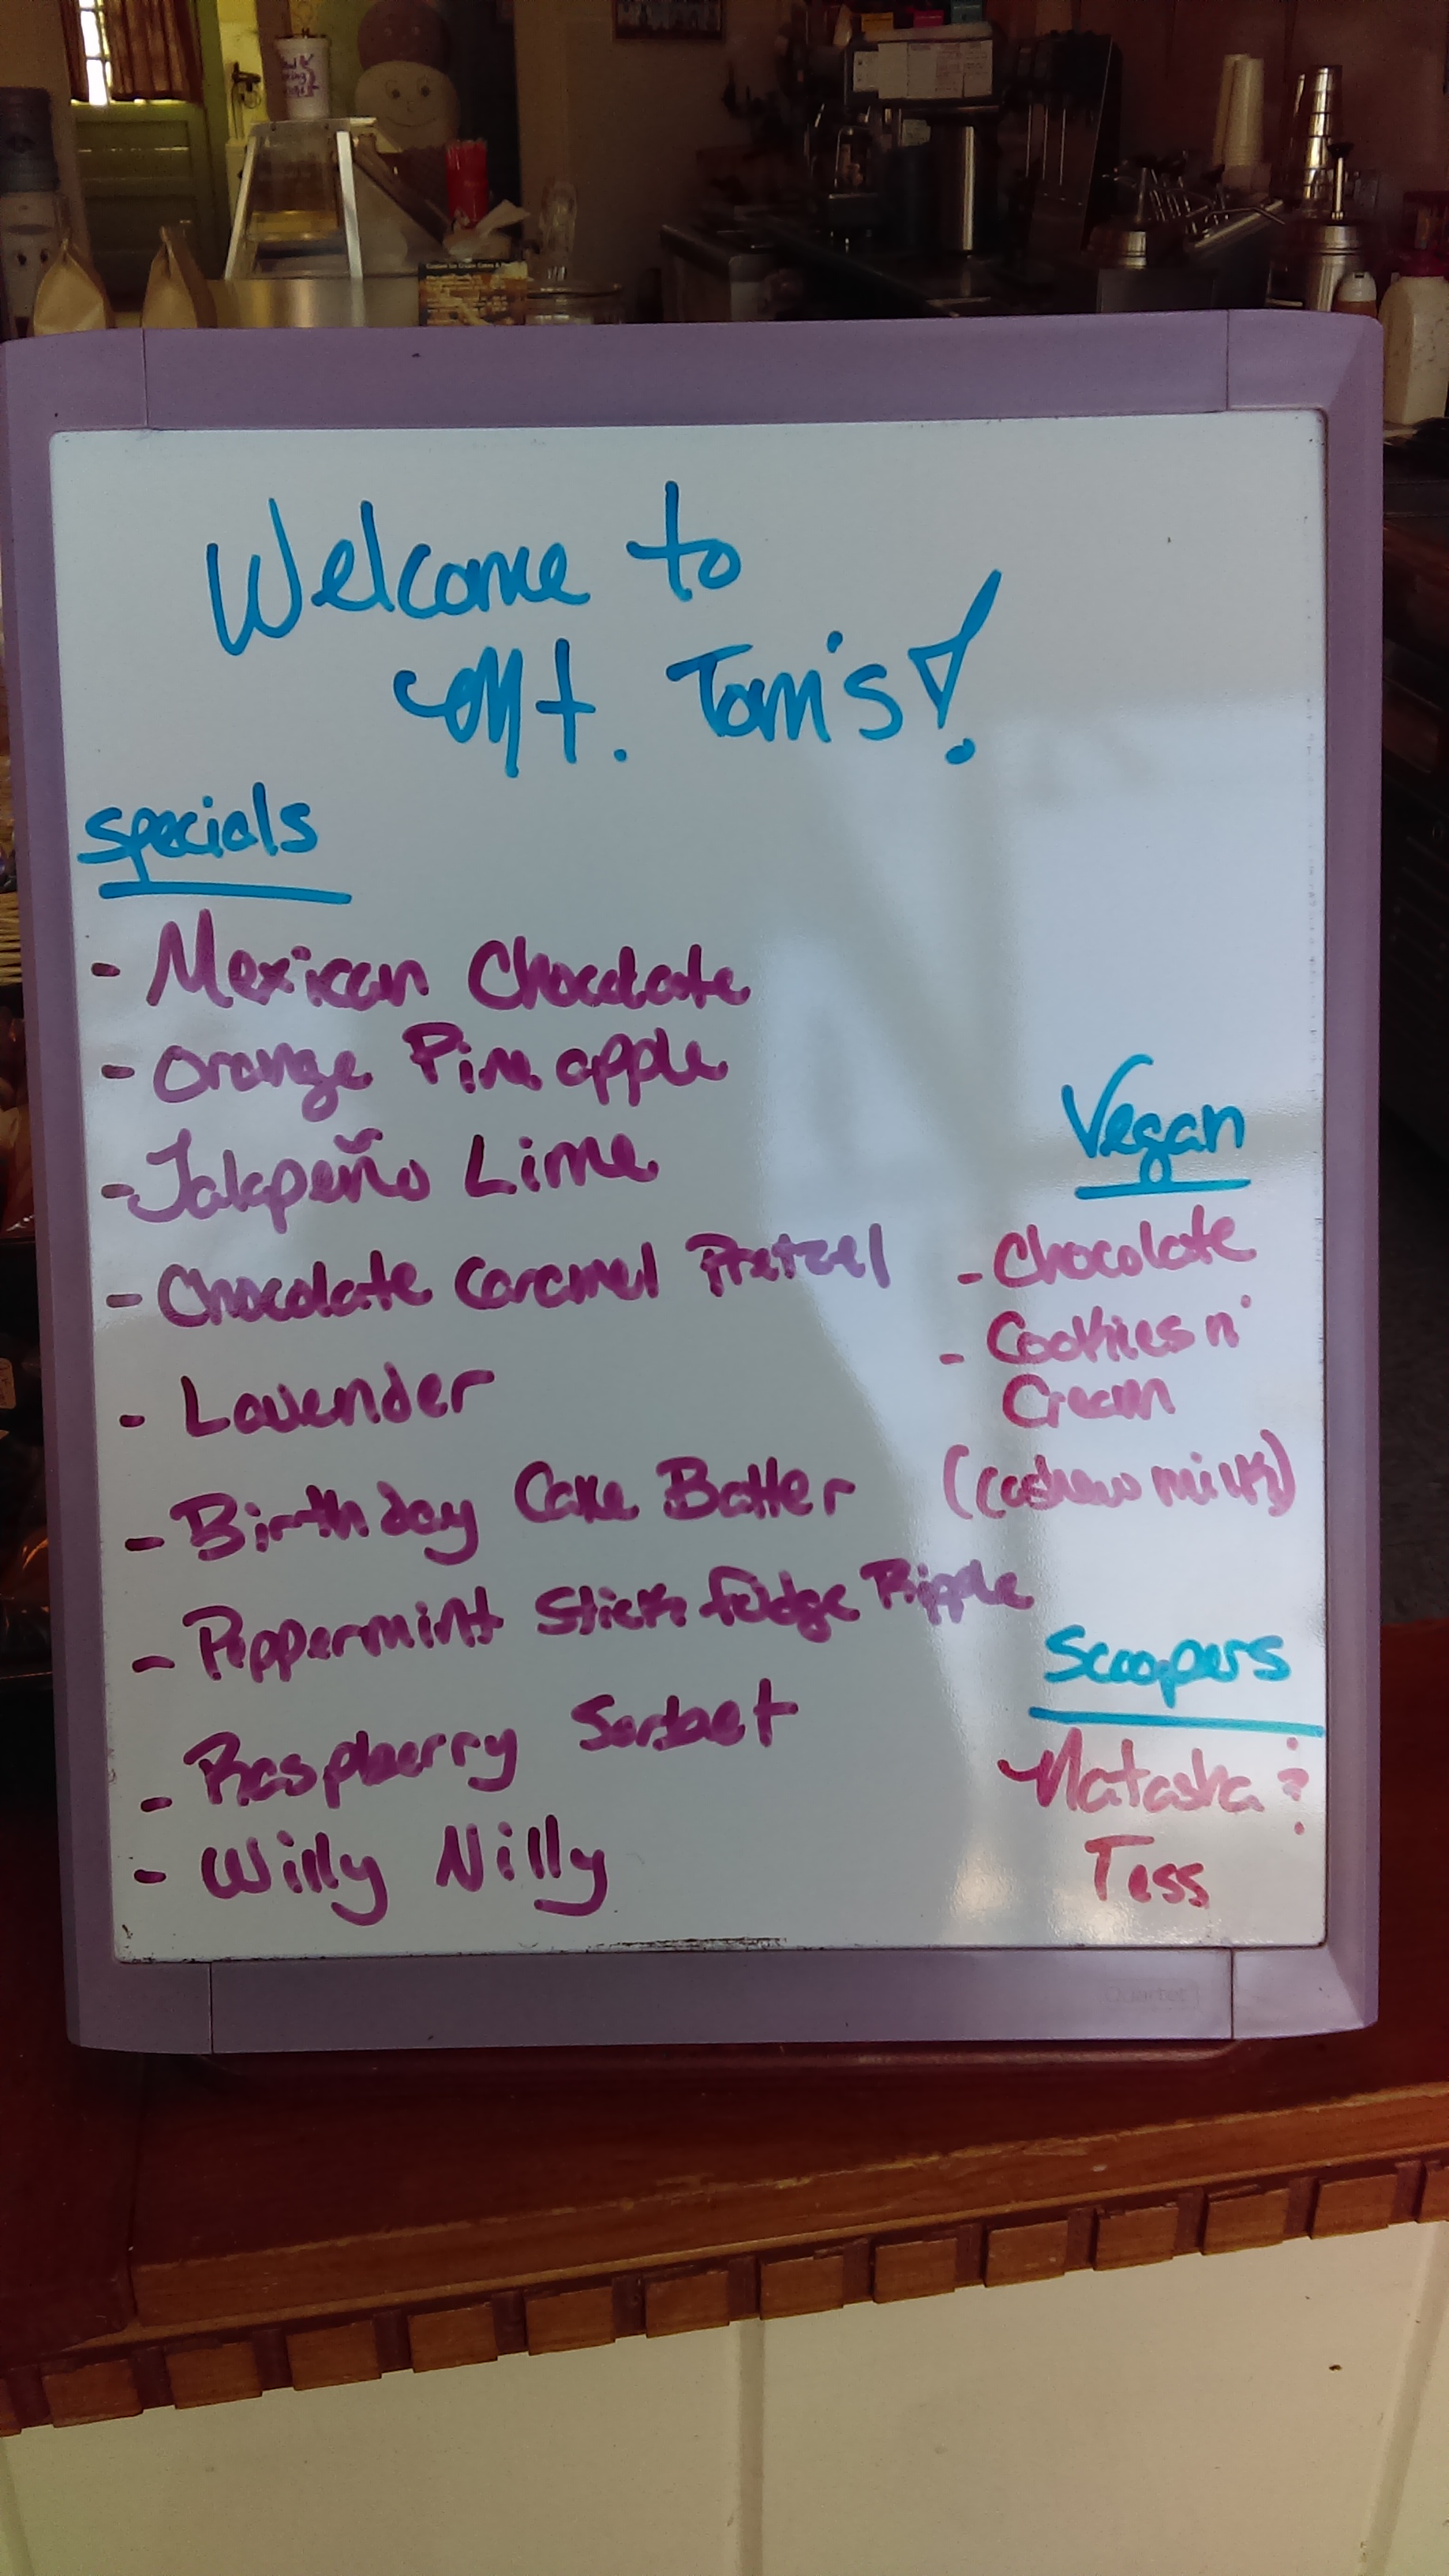 Welcome to
Mt. Tom's!
Specials
- Mexican Chocolate
- Orange Pineapple
- Jalapeño Lime
- Chocolate Caramel Pretzel
- Lavender
- Birthday Cake Batter
- Peppermint Stick Fudge Ripple
- Raspberry Sorbet
- Willy Nilly
Vegan
- Chocolate
- Cookies n'
Cream
(cashew milk)
Scoopers
Natasha &
Tess